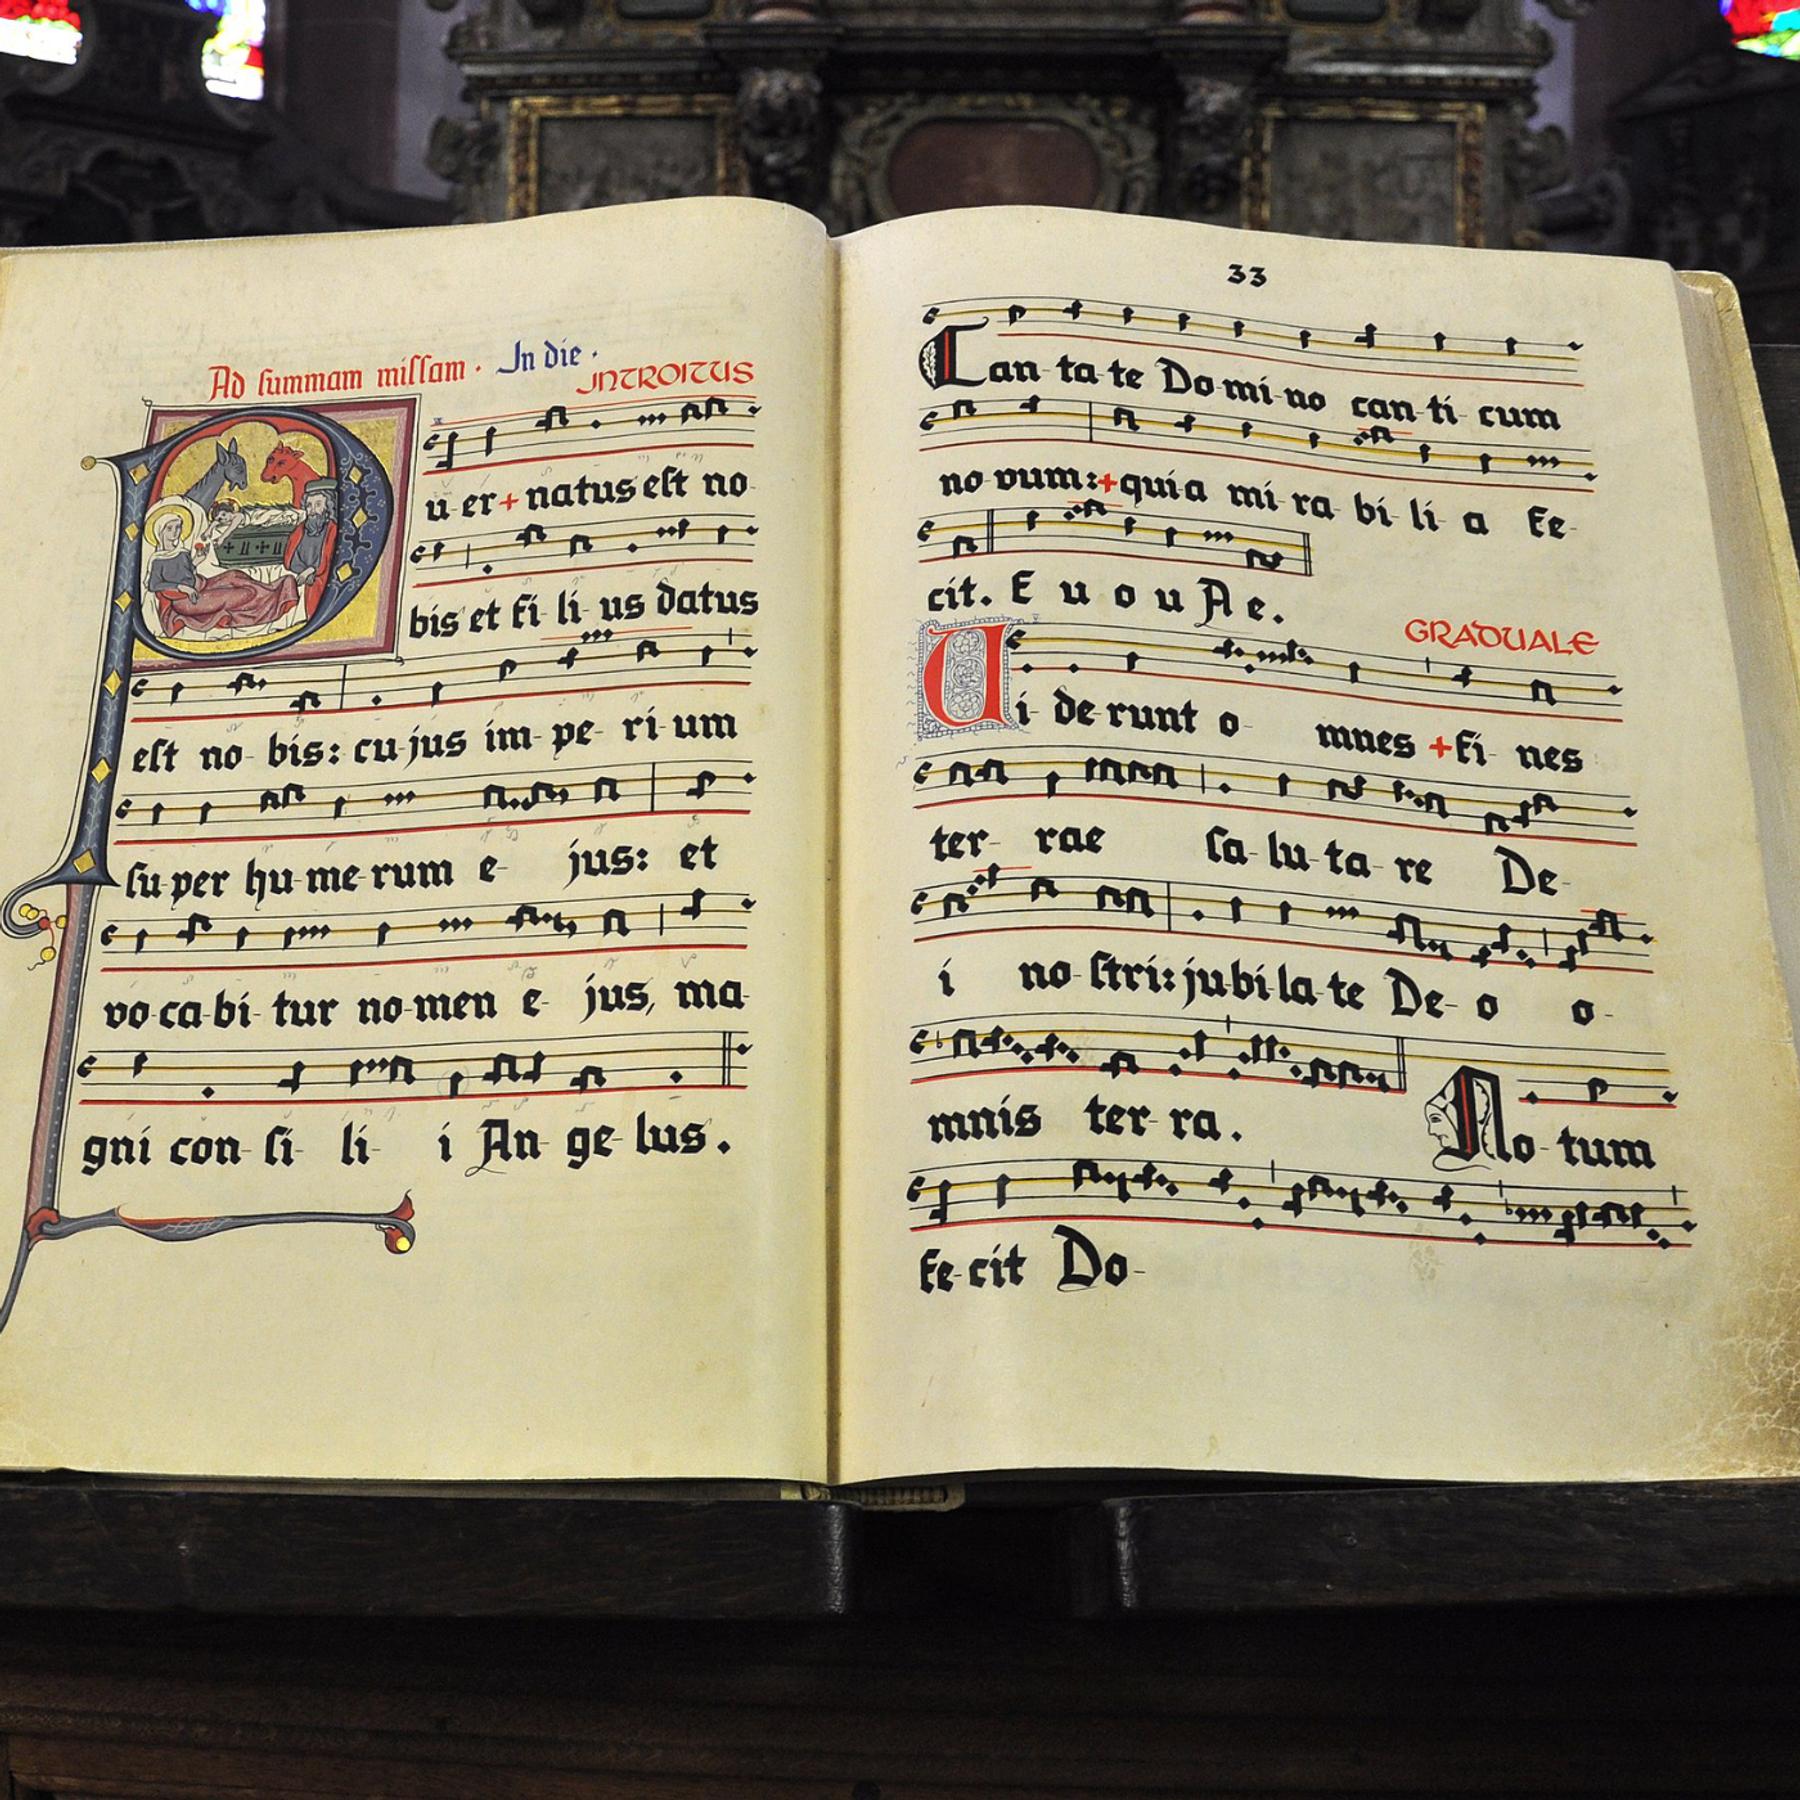 Ad summam missam · In die ·
INTROITUS
Pu-er+natus est no-
bis et fi-li-us datus
est no-bis: cu-jus im-pe-ri-um
su-per hu-me-rum e-jus: et
vo-ca-bi-tur no-men e-jus, ma-
gni con-si-li-i An-ge-lus.
33
Can-ta-te Do-mi-no can-ti-cum
no-vum:+quia mi-ra-bi-li-a fe-
cit. E u o u A e.
GRADUALE
Vi-de-runt o-mnes +fi-nes
ter-rae sa-lu-ta-re De-
i no-stri: ju-bi-la-te De-o o-
mnis ter-ra. No-tum
fe-cit Do-